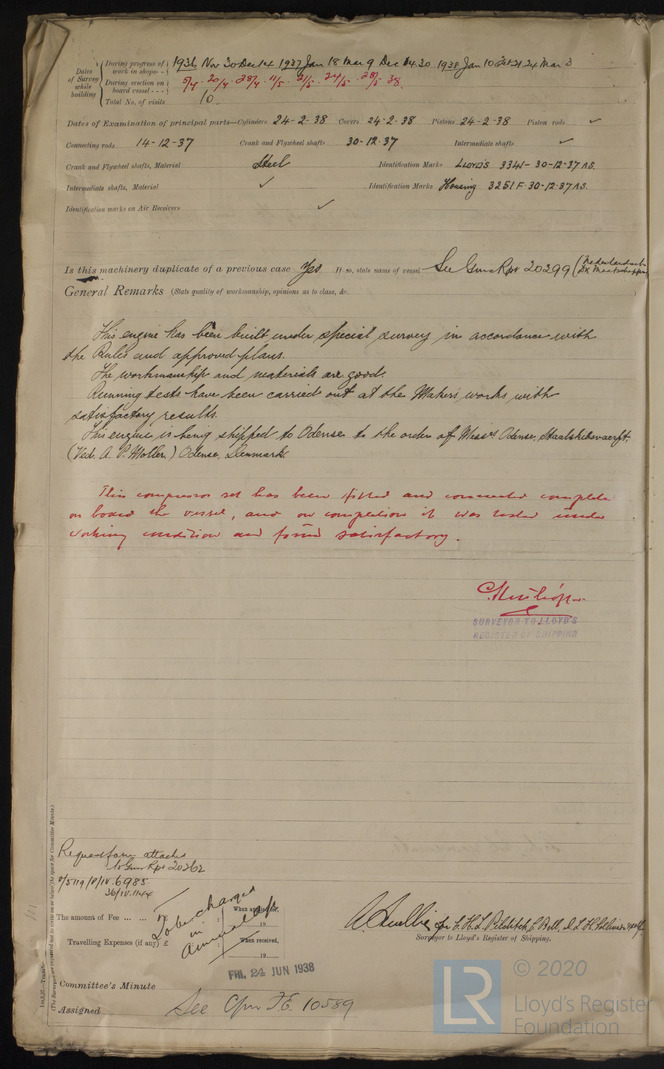 Dates of Survey while building
During progress of work in shops - - 1936 Nov 30 Dec 14 1937 Jan 18 Mar 9 Dec 14.30 1938 Jan 10 24 Mar 3
During erection on board vessel - - - 5/4 20/4 28/4 11/5 21/5 24/5 28/5 38.
Total No. of visits 10
Dates of Examination of principal parts—Cylinders 24-2-38 Covers 24-2-38 Pistons 24-2-38 Piston rods ✓
Connecting rods 14-12-37 Crank and Flywheel shafts 30-12-37 Intermediate shafts ✓
Crank and Flywheel shafts, Material Steel Identification Marks LLOYD'S 3341 - 30-12-37 A.S.
Intermediate shafts, Material ✓ Identification Marks Housing 3251F 30-12-37 A.S.
Identification marks on Air Receivers ✓
Is this machinery duplicate of a previous case Yes If so, state name of vessel See Rpt 20299 (Nederlandsche
General Remarks (State quality of workmanship, opinions as to class, &c.
This engine has been built under special survey in accordance with
the Rules and approved plans.
The workmanship and materials are good.
Running tests have been carried out at the Makers works with
satisfactory results.
This engine is being shipped to Odense to the order of Messrs Odense Staalskibsvaerft.
(Ved. A. P. Moller.) Odense, Denmark
This compressor set has been fitted and connected complete
on board the vessel, and on completion it was tested under
working condition and found satisfactory.
SURVEYOR TO LLOYD'S
REGISTER OF SHIPPING
Request form attached
to Rpt 20262
6985
The amount of Fee ... ... £ To be charged in When applied for,
19
Travelling Expenses (if any) £ When received,
19
Surveyor to Lloyd's Register of Shipping.
FRI. 24 JUN 1938
Committee's Minute
Assigned See F.E. 10589
(The Surveyors are requested not to write on or below the space for Committee Minute.)
© 2020
LR
Lloyd's Register
Foundation